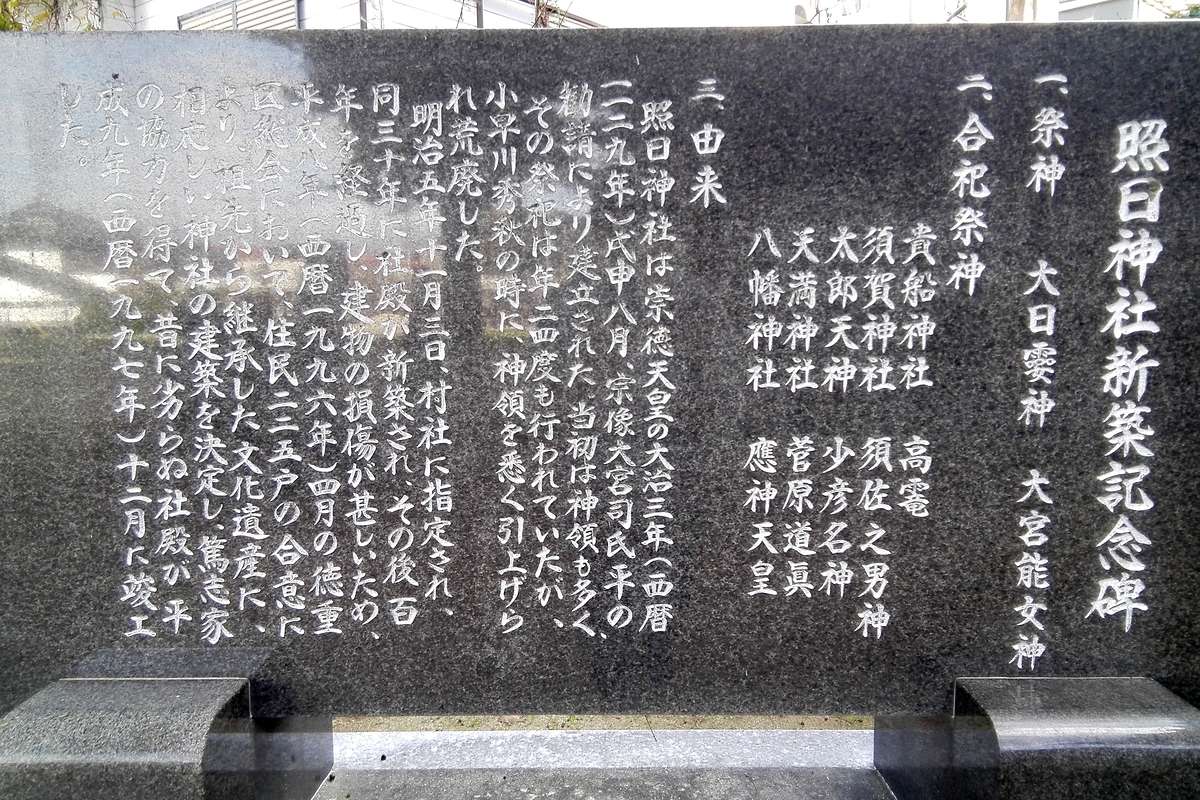 照日神社新築記念碑
一、祭神　大日孁神　大宮能女神
二、合祀祭神
貴船神社　高龗
須賀神社　須佐之男神
太郎天神　少彦名神
天満神社　菅原道眞
八幡神社　應神天皇
三、由来
照日神社は崇徳天皇の大治三年（西暦
一一二九年）戊申八月、宗像大宮司氏平の
勧請により建立された。当初は神領も多く、
その祭祀は年二四度も行われていたが、
小早川秀秋の時に、神領を悉く引上げら
れ荒廃した。
明治五年十一月三日、村社に指定され、
同三十年に社殿が新築され、その後百
年を経過し、建物の損傷が甚しいため、
平成八年（西暦一九九六年）四月の徳重
区総会において、住民二二五戸の合意に
より、祖先から継承した文化遺産に、
相応しい神社の建築を決定し、篤志家
の協力を得て、昔に劣らぬ社殿が平
成九年（西暦一九九七年）十二月に竣工
した。